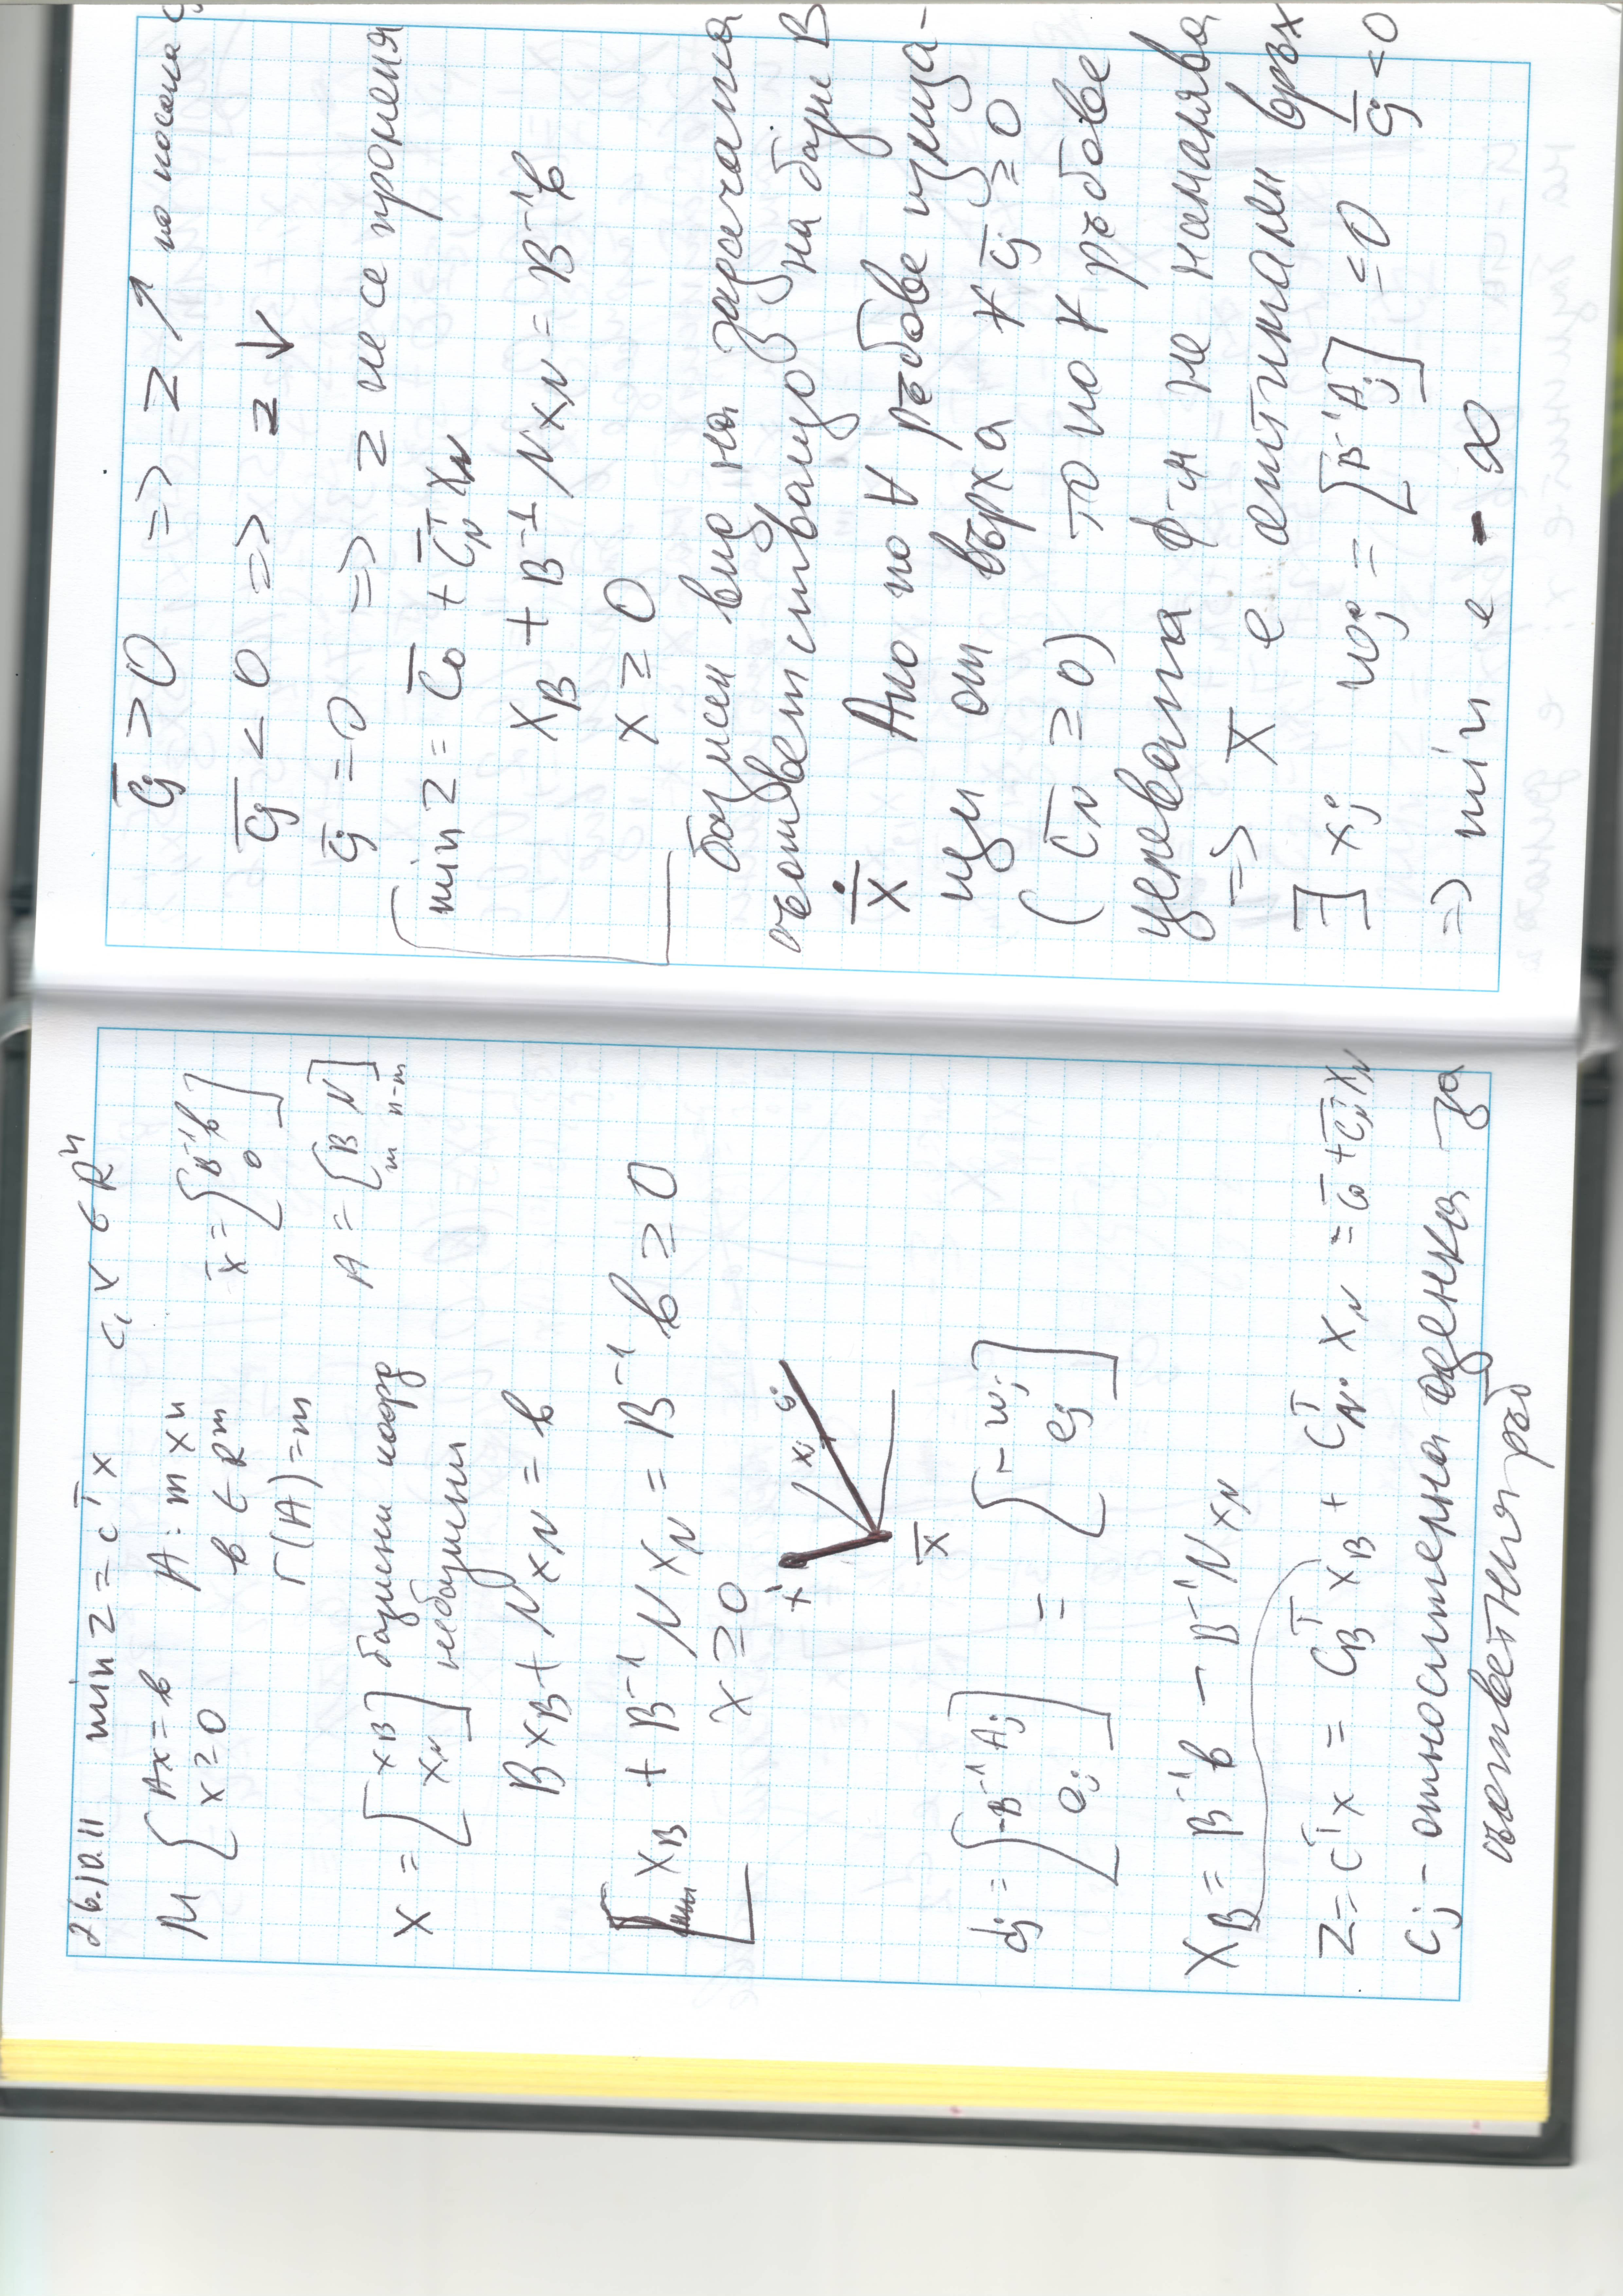 26.10.11 min z = cᵀx c, x ∈ Rⁿ
M { Ax = b A: m×n x̄ = [B⁻¹b
x ≥ 0 b ∈ Rᵐ 0]
r(A) = m A = [B N]
m n-m
x = [x_B] базисни коорд
[x_N] небазисни
Bx_B + Nx_N = b
x_B + B⁻¹Nx_N = B⁻¹b ≥ 0
x ≥ 0
x̄
d_j = [-B⁻¹A_j] = [-w_j]
[e_j] [e_j]
x_B = B⁻¹b - B⁻¹Nx_N
z = cᵀx = c_Bᵀ x_B + c_Nᵀ · x_N = c̄₀ + c̄_Nᵀ x_N
c_j - относителна оценка за
съответния ръб
c̄_j > 0 => z ↗ по посока
c̄_j < 0 => z ↓
c̄_j = 0 => z не се променя
min z = c̄₀ + c̄_Nᵀ x_N
x_B + B⁻¹Nx_N = B⁻¹b
x ≥ 0
базисен вид на задачата
съответстващо на базис B
x̄. Ако по ∀ ръбове излиза-
щи от върха ∀ c̄_j ≥ 0
(c̄_N ≥ 0) то по ∀ ръбове
целевата ф-я не намалява
=> x̄ е оптимален връх
∃ x_j w_j = [B⁻¹A_j] ≤ 0 c̄_j < 0
=> min e - ∞